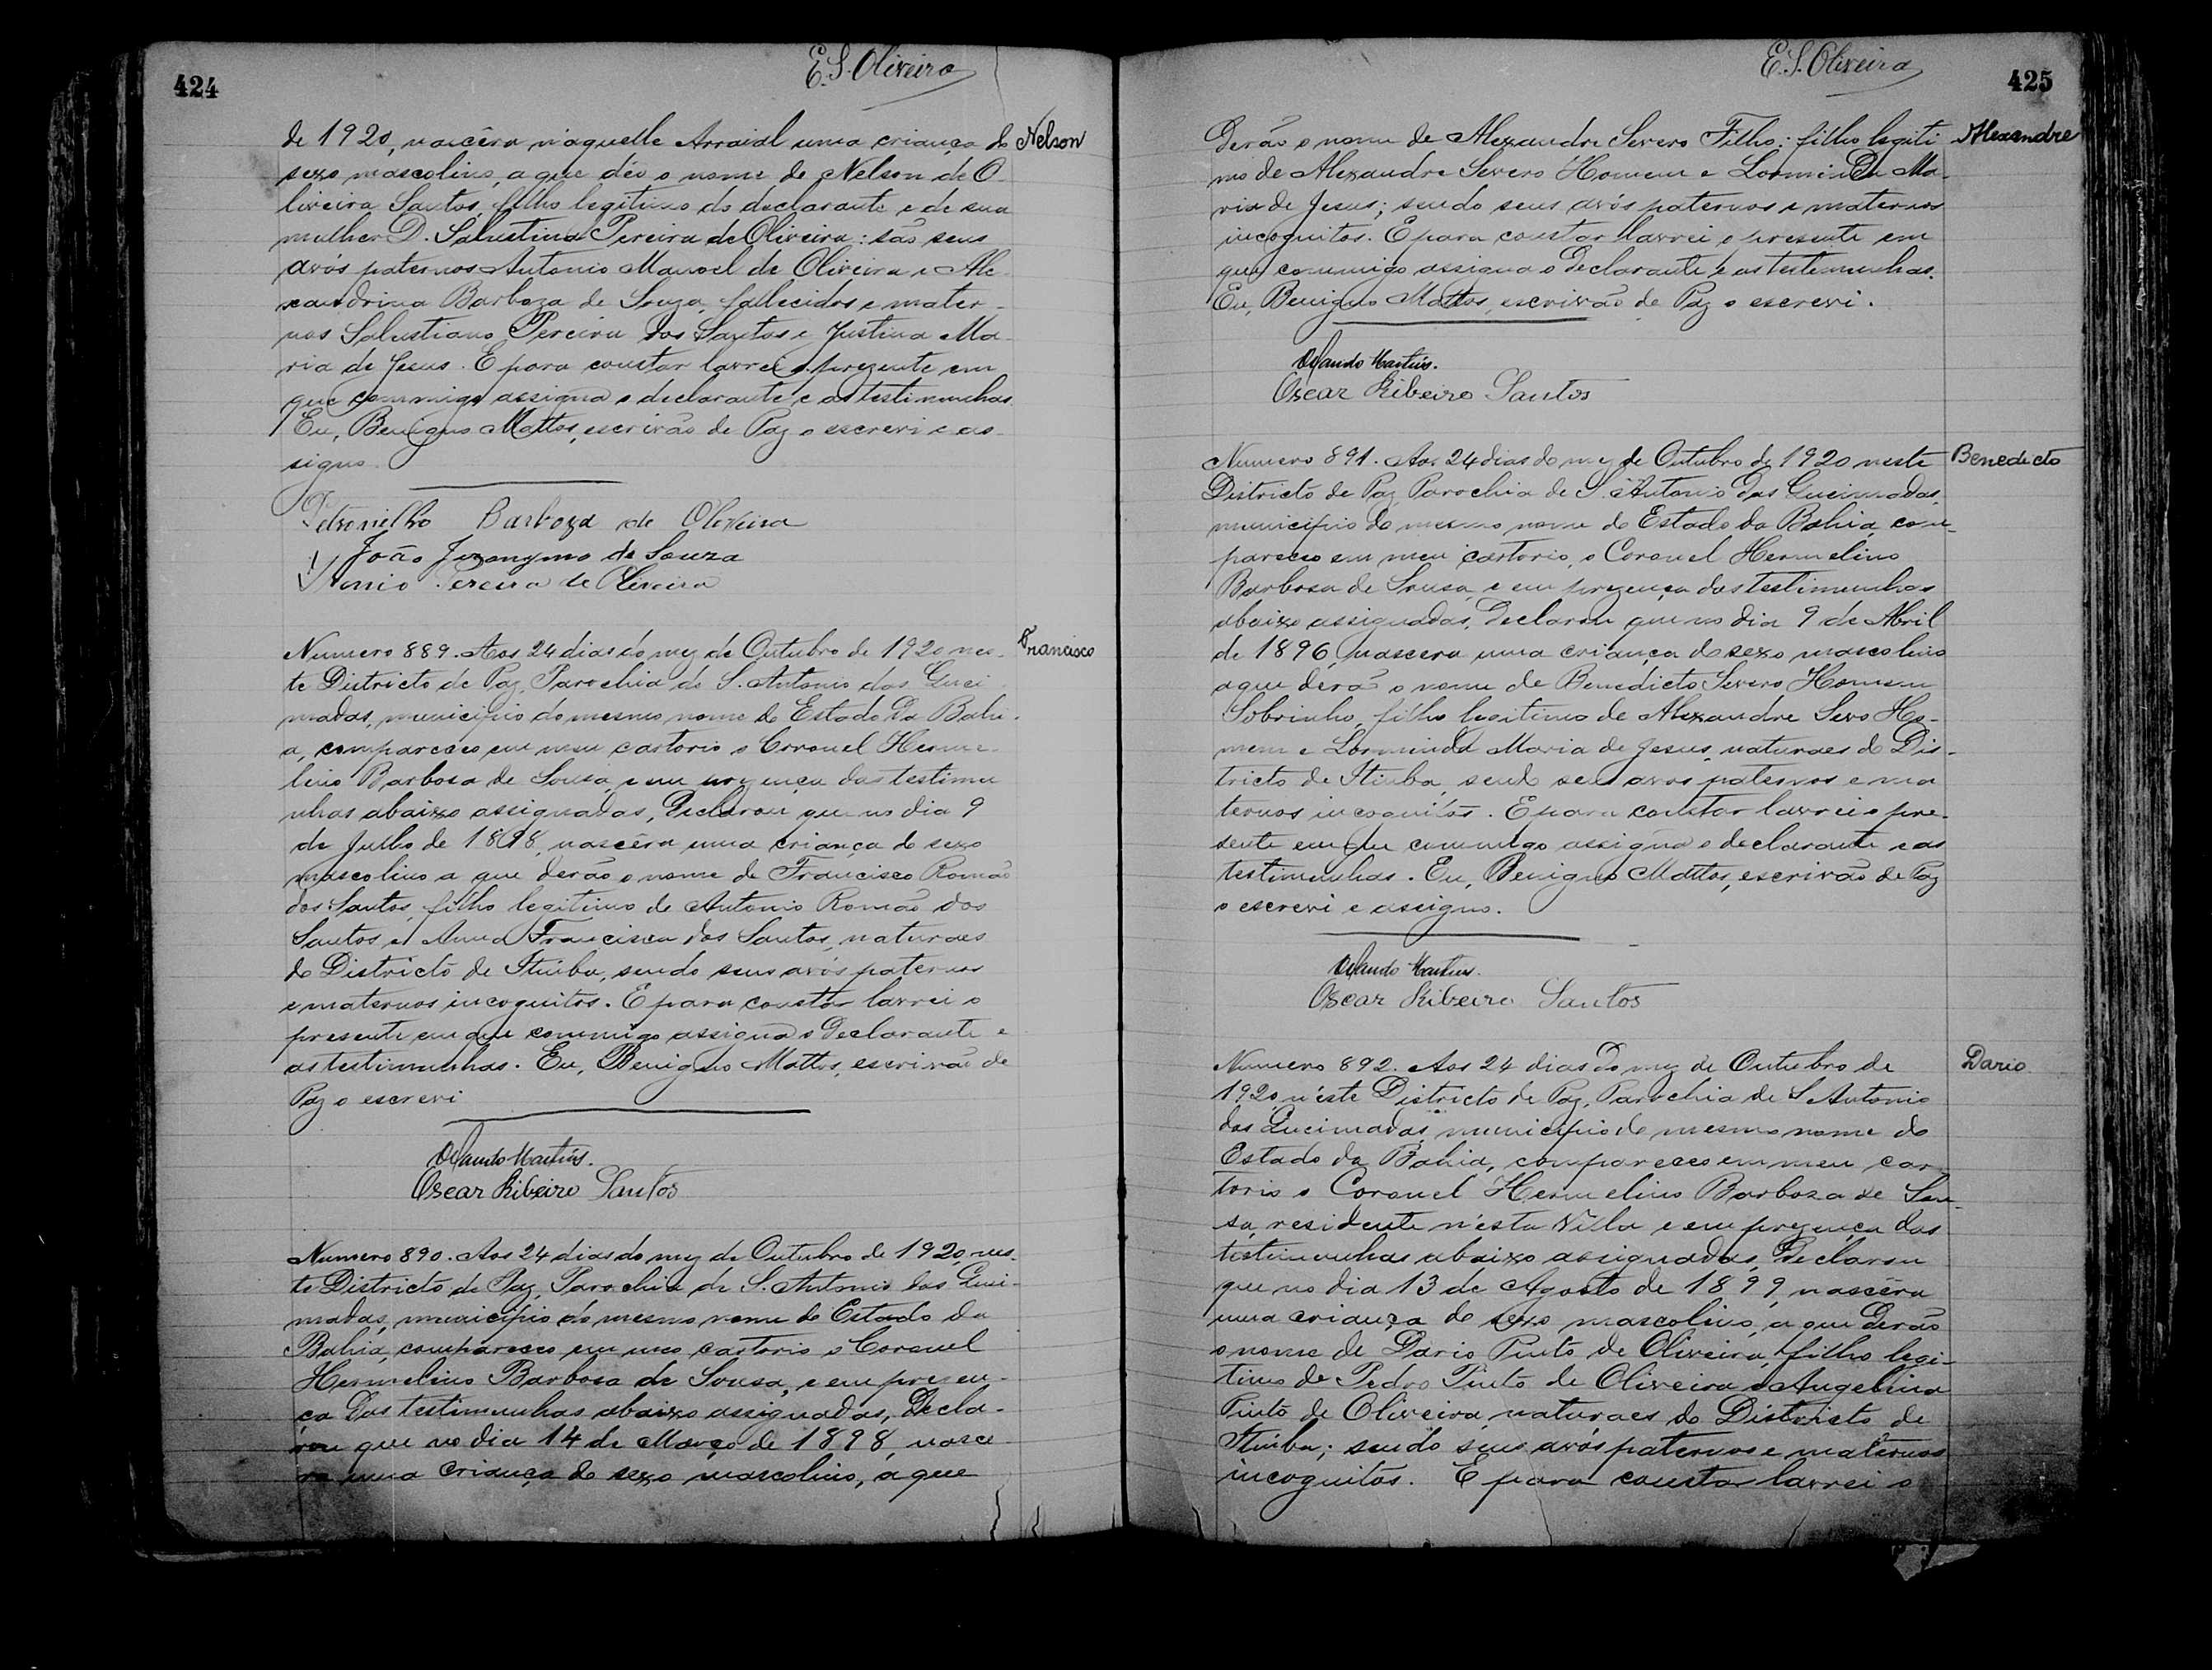 424
E.S. Oliveira
de 1920, nascêra n'aquelle Arraial uma criança do
Nelson
sexo mascolino, a que déo o nome de Nelson de O-
liveira Santos, filho legitimo do declarante e de sua
mulher D. Salustina Pereira de Oliveira: são seus
avós paternos Antonio Manoel de Oliveira e Ale-
xandrina Barboza de Souza, fallecidos e mater-
nos Salustiano Pereira dos Santos e Justina Ma-
ria de Jesus. E para constar lavrei o prezente em
que commigo assigna o declarante e as testimunhas.
Eu, Benigno Mattos, escrivão de Paz o escrevi e as-
signo.
Petronilho Barboza de Oliveira
João Jeronymo de Souza
Antonio Pereira de Oliveira
Numero 889. Aos 24 dias do mez de Outubro de 1920 nes-
Francisco
te Districto de Paz, Parochia de S. Antonio das Quei
madas, municipio do mesmo nome do Estado da Bahi-
a, compareceo em meu cartorio o Coronel Herme-
lino Barbosa de Sousa, e em prezença das testimu
nhas abaixo assignadas, Declarou que no dia 9
de Julho de 1898, nascêra uma criança do sexo
mascolino a que derão o nome de Francisco Romão
dos Santos, filho legitimo de Antonio Romão dos
Santos e Anna Francisca dos Santos, naturaes
do Districto de Itiúba, sendo seus avós paternos
e maternos incognitos. E para constar lavrei o
presente em que commigo assigna o Declarante e
as testimunhas. Eu, Benigno Mattos, escrivão de
Paz o escrevi
Orlando Martins.
Oscar Ribeiro Santos
Numero 890. Aos 24 dias do mez de Outubro de 1920, nes-
te Districto de Paz, Parochia de S. Antonio das Quei-
madas, municipio do mesmo nome do Estado da
Bahia, compareceo em meo cartorio o Coronel
Hermelino Barbosa de Sousa, e em prezen-
ça das testimunhas abaixo assignadas, Decla-
rou que no dia 14 de Março de 1898, nasce-
ra uma criança do sexo mascolino, a que
425
E.S. Oliveira
Derão o nome de Alexandre Severo Filho: filho legiti
Alexandre
mo de Alexandre Severo Homem e Lorminda Ma-
ria de Jesus; sendo seus avós paternos e maternos
incognitos. E para constar lavrei o presente em
que commigo assigna o Declarante e as testemunhas.
Eu, Benigno Mattos, escrivão de Paz o escrevi.
Orlando Martins.
Oscar Ribeiro Santos
Numero 891. Aos 24 dias do mez de Outubro de 1920 neste
Benedicto
Districto de Paz Parochia de S. Antonio das Queimadas,
municipio do mesmo nome do Estado da Bahia, com-
pareceo em meu cartorio, o Coronel Hermelino
Barbosa de Sousa, e em prezença das testimunhas
abaixo assignadas, Declarou que no dia 9 de Abril
de 1896, nascera uma criança do sexo mascolino
a que derão o nome de Benedicto Severo Homem
Sobrinho, filho legitimo de Alexandre Sevo Ho-
mem e Lorminda Maria de Jesus, naturaes do Dis-
tricto de Itiuba, send seus avos paternos e ma
ternos incognitos. E para constar lavrei o pre-
sente em que commigo assigna o declarante e as
testimunhas. Eu, Benigno Mattos, escrivão de Paz
o escrevi e assigno.
Orlando Martins.
Oscar Ribeiro Santos
Numero 892. Aos 24 dias do mez de Outubro de
Dario
1920, n'éste Districto de Paz, Parochia de S. Antonio
das Queimadas, municipio do mesmo nome do
Estado da Bahia, compareceo em meu car
torio o Coronel Hermelino Barboza de Sou-
sa, residente n'esta Villa e em prezença das
testimunhas abaixo assignadas, Declarou
que no dia 13 de Agosto de 1899, nascêra
uma criança do sexo mascolino, a que Derão
o nome de Dario Pinto de Oliveira, filho legi-
timo de Pedro Pinto de Oliveira e Angelina
Pinto de Oliveira, naturaes do Districto de
Itiúba; sendo seus avós paternos e maternos
incognitos. E para constar lavrei o